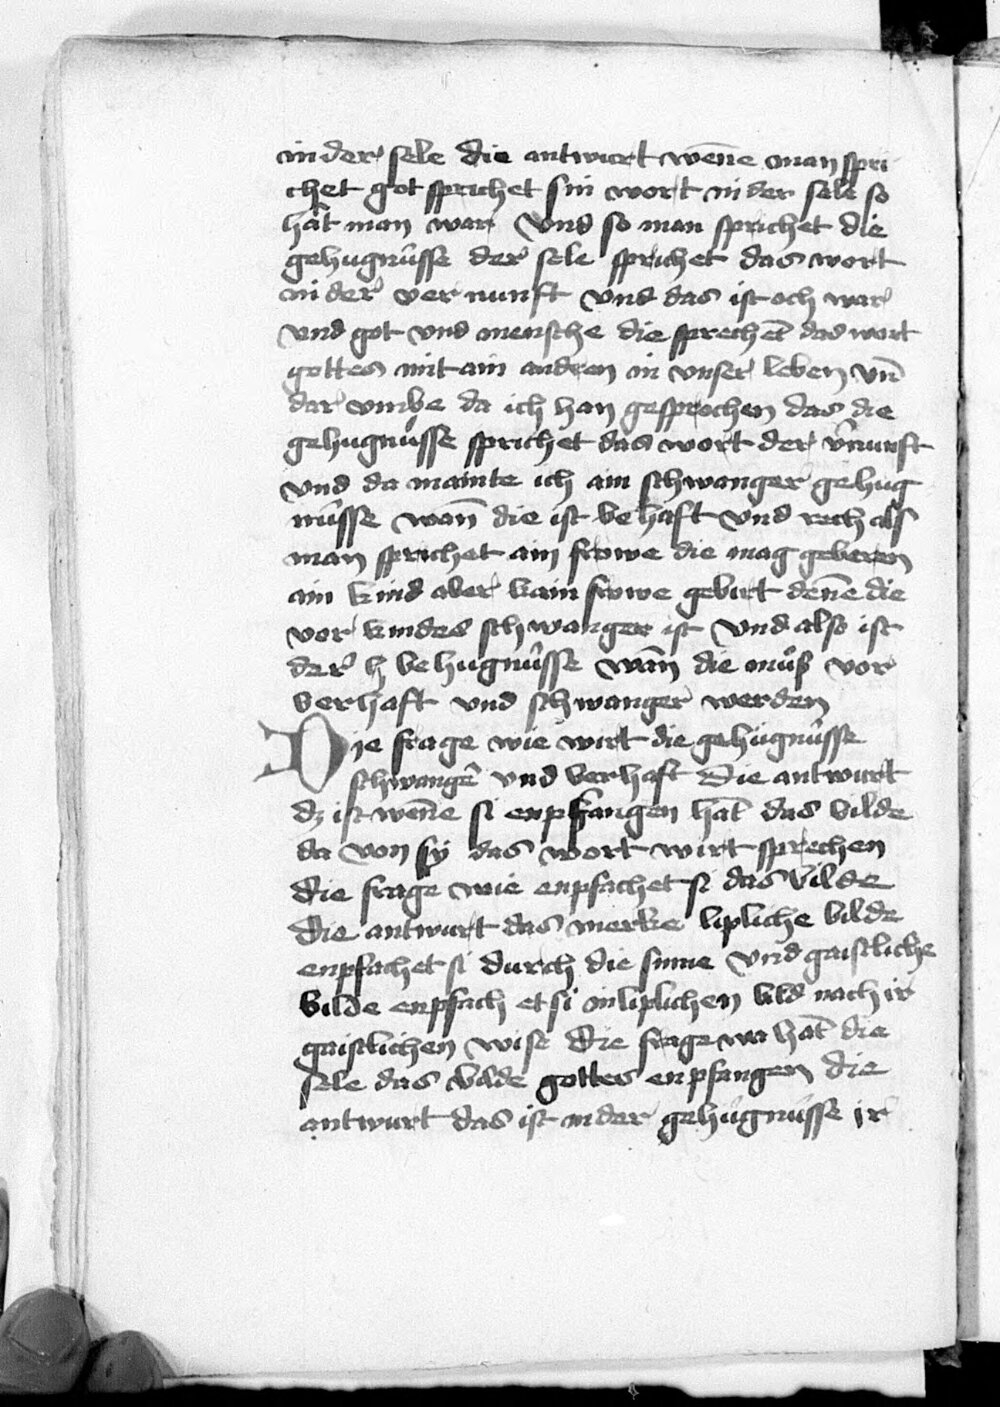 in der sele die antwurt wēne man spri
chet got sprichet sin wort in der sele so
hāt man war Vnd so man sprichet die
gehugnússe der sele sprichet das wort
in der ver nunft vnd das ist och war
vnd got vnd mensche die sprechēt das wort
gottes mit ain andren in vnser leben vn̄
dar vmbe da ich han gesprochen das die
gehugnússe sprichet das wort der v̄nunft
vnd da mainte ich ain schwanger gehug
nússe wan̄ die ist behaft vnd recht als
man sprichet ain frowe die mag geberen
ain kind aber kain frowe gebirt den̄e die
vor kindes schwanger ist Vnd also ist
der h behugnússe wan̄ die můß vor
berhaft vnd schwanger werden
Die frage wie wirt die gehugnússe
schwangē vnd berhaft Die antwurt
dz ist wēne si enpfangen hāt das bilde
da von sÿ das wort wirt sprechen
die frage wie enpfachet si das bilde
Die antwurt das merke lipliche bilde
enpfachet si durch die sinne Vnd gaistliche
bilde enpfach et si in liplichen bild nach ir
gaistlichen wise die frage wa hāt die
sele das bilde gottes enpfangen die
antwurt das ist in der gehugnússe ir